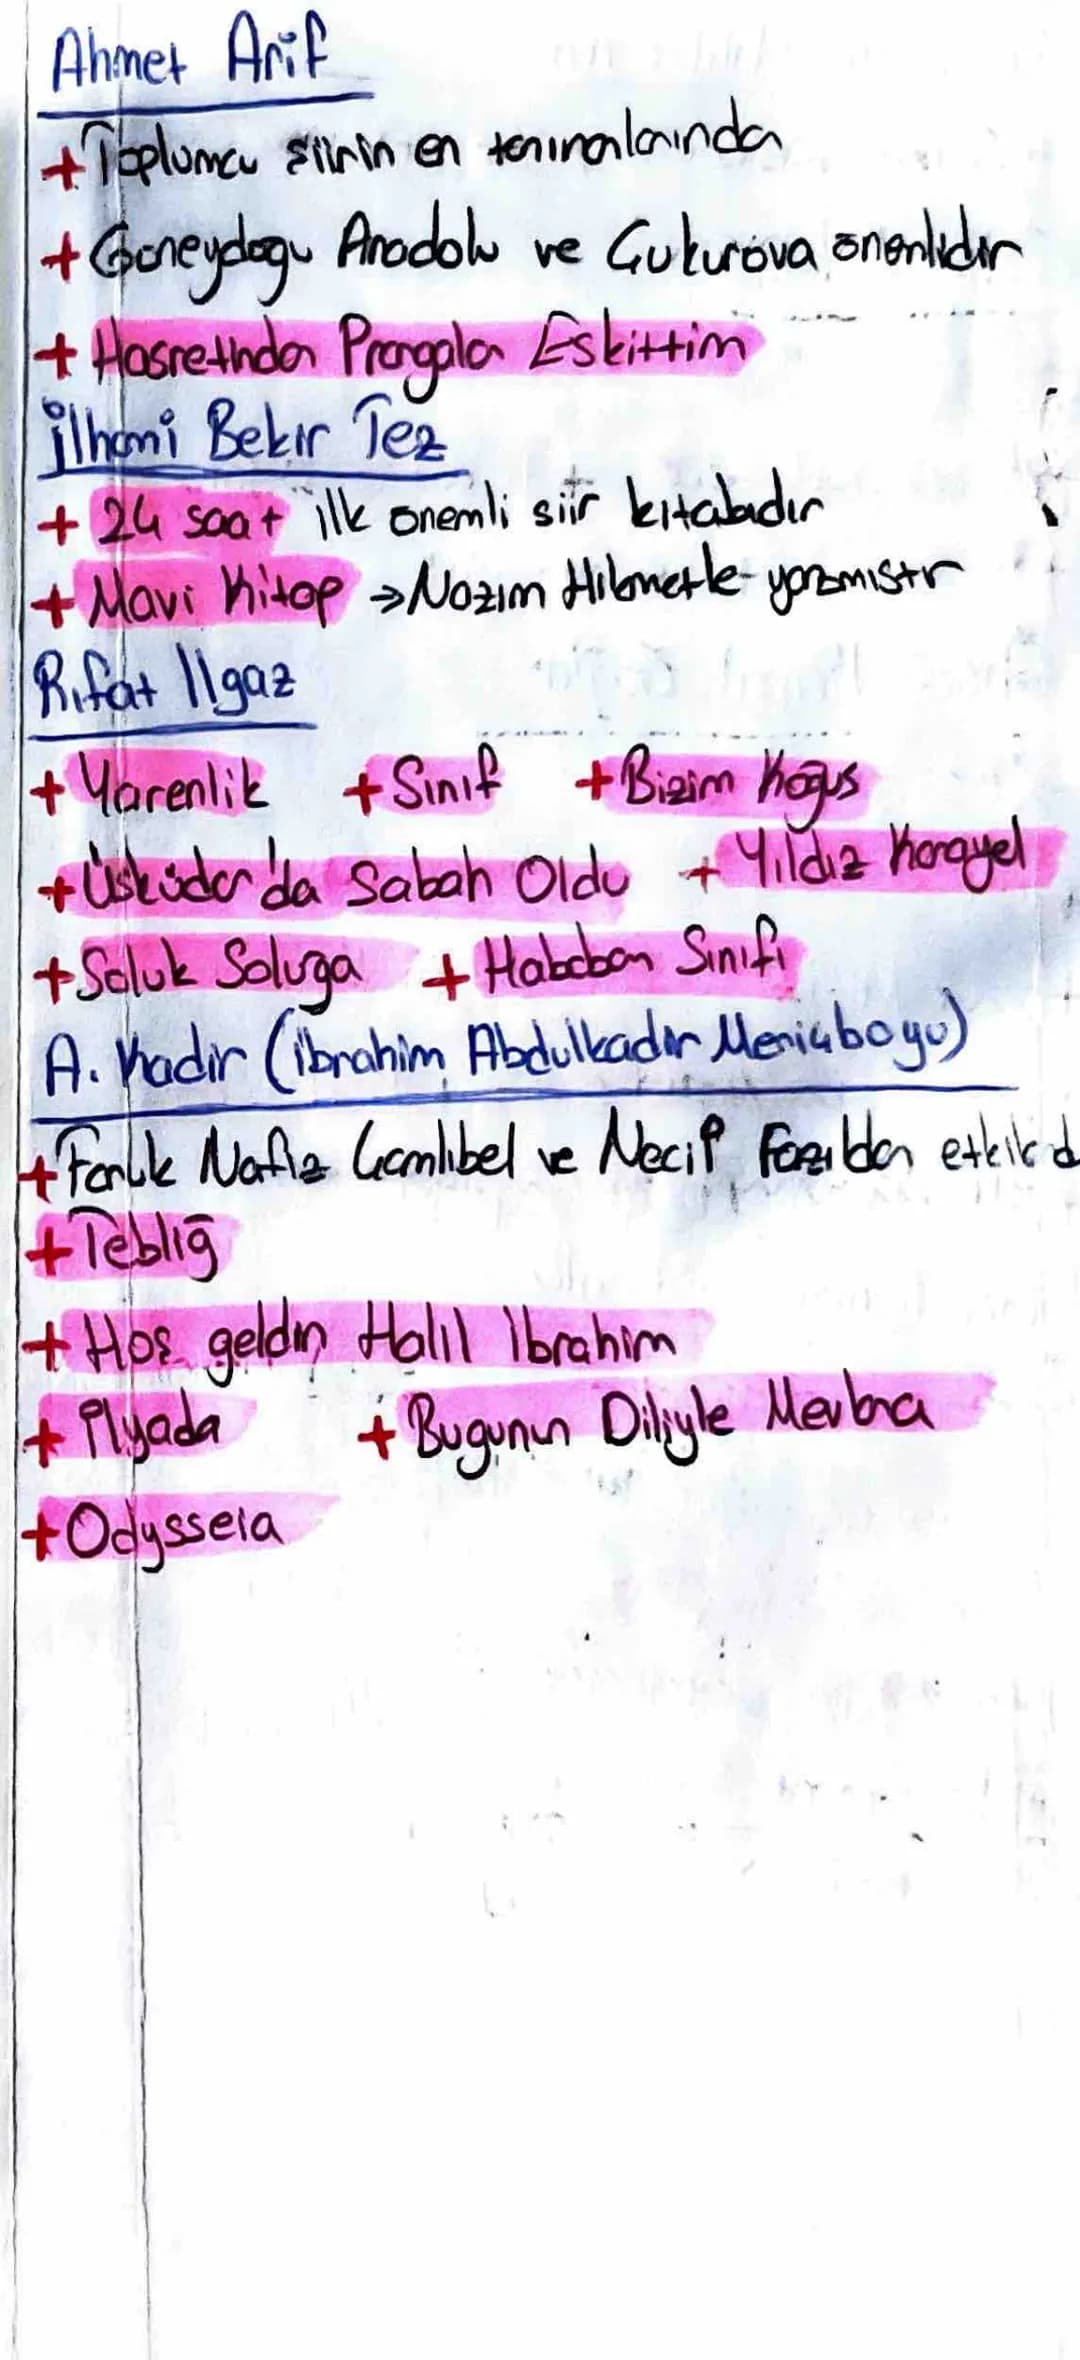 Ahmet Arif
+ Toplumcu şiirin en tanınanlarından
+ Güneydogu Anadolu ve Çukurova önemlidir
+ Hasretinden Prangalar Eskittim
İlhami Bekir Tez
+ 24 saat ilk önemli şiir kitabıdır
+ Mavi Kitap → Nazım Hikmetle yazmıştır
Rıfat Ilgaz
+ Yarenlik + Sınıf + Bizim Koğuş
+ Üsküdar'da Sabah Oldu + Yıldız Karayel
+ Soluk Soluğa + Hababam Sınıfı
A. Kadir (İbrahim Abdulkadir Meriçboyu)
+ Faruk Nafiz Çamlıbel ve Necip Fazıldan etkilend
+ Tebliğ
+ Hoş geldin Halil İbrahim
+ İlyada + Bugünün Diliyle Mevlana
+ Odysseia